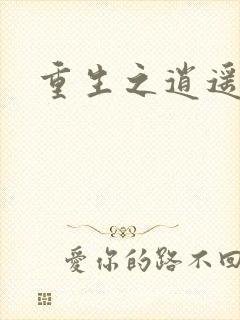 重生之逍遥
愛你的路不回